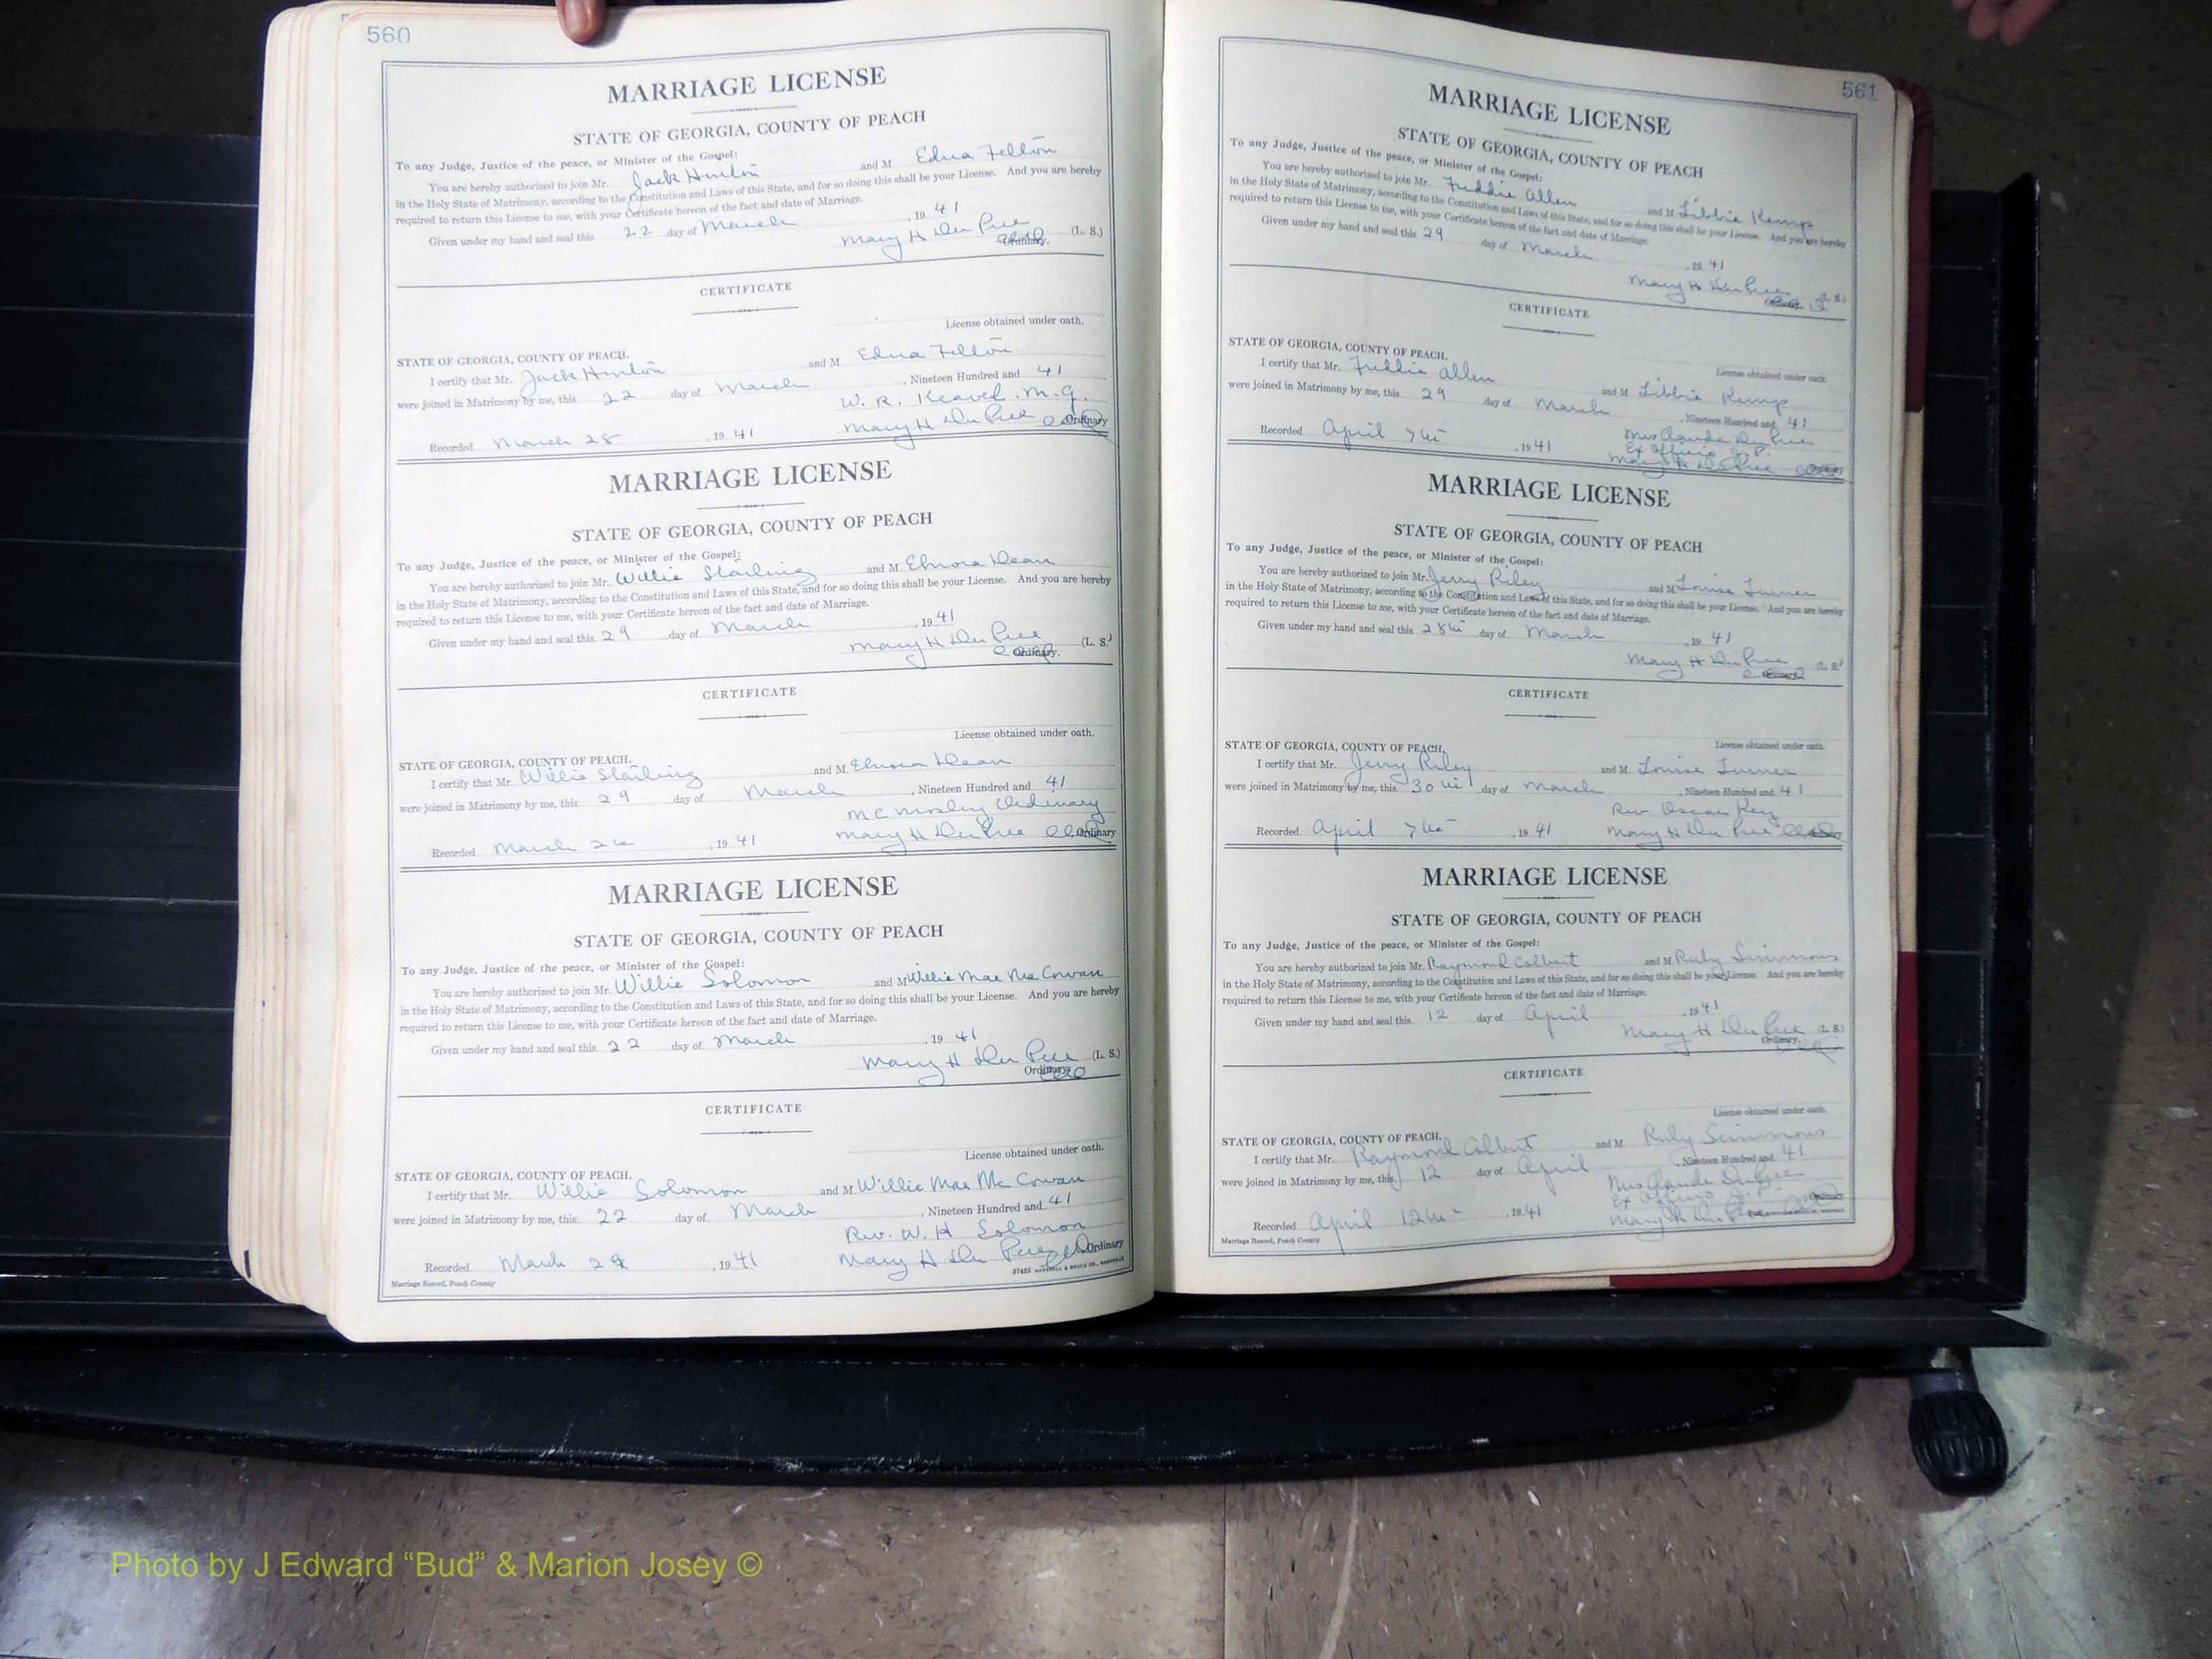 560
MARRIAGE LICENSE
STATE OF GEORGIA, COUNTY OF PEACH
To any Judge, Justice of the peace, or Minister of the Gospel:
You are hereby authorized to join Mr. Jack Hinton and M Edna Felton
in the Holy State of Matrimony, according to the Constitution and Laws of this State, and for so doing this shall be your License. And you are hereby
required to return this License to me, with your Certificate hereon of the fact and date of Marriage.
Given under my hand and seal this 22 day of March, 19 41
Mary H DuPree (L. S.)
Ordinary.
CERTIFICATE
License obtained under oath.
STATE OF GEORGIA, COUNTY OF PEACH.
I certify that Mr. Jack Hinton and M Edna Felton
were joined in Matrimony by me, this 22 day of March, Nineteen Hundred and 41
W. R. M.G.
Recorded March 28, 19 41 Mary H DuPree Ordinary
MARRIAGE LICENSE
STATE OF GEORGIA, COUNTY OF PEACH
To any Judge, Justice of the peace, or Minister of the Gospel:
You are hereby authorized to join Mr. Willie Starling and M Elnora Dean
in the Holy State of Matrimony, according to the Constitution and Laws of this State, and for so doing this shall be your License. And you are hereby
required to return this License to me, with your Certificate hereon of the fact and date of Marriage.
Given under my hand and seal this 29 day of March, 19 41
Mary H DuPree (L. S.)
Ordinary.
CERTIFICATE
License obtained under oath.
STATE OF GEORGIA, COUNTY OF PEACH.
I certify that Mr. Willie Starling and M Elnora Dean
were joined in Matrimony by me, this 29 day of March, Nineteen Hundred and 41
M C Mosley Ordinary
Recorded March, 19 41 Mary H DuPree Ordinary
MARRIAGE LICENSE
STATE OF GEORGIA, COUNTY OF PEACH
To any Judge, Justice of the peace, or Minister of the Gospel:
You are hereby authorized to join Mr. Willie Solomon and M Willie Mae McCowan
in the Holy State of Matrimony, according to the Constitution and Laws of this State, and for so doing this shall be your License. And you are hereby
required to return this License to me, with your Certificate hereon of the fact and date of Marriage.
Given under my hand and seal this 22 day of March, 19 41
Mary H DuPree (L. S.)
Ordinary.
CERTIFICATE
License obtained under oath.
STATE OF GEORGIA, COUNTY OF PEACH.
I certify that Mr. Willie Solomon and M Willie Mae McCowan
were joined in Matrimony by me, this 22 day of March, Nineteen Hundred and 41
Rev. W. H Solomon
Recorded March 29, 19 41 Mary H DuPree Ordinary
Marriage Record, Peach County
561
MARRIAGE LICENSE
STATE OF GEORGIA, COUNTY OF PEACH
To any Judge, Justice of the peace, or Minister of the Gospel:
You are hereby authorized to join Mr. Freddie Allen and M Libbie Kemp
in the Holy State of Matrimony, according to the Constitution and Laws of this State, and for so doing this shall be your License. And you are hereby
required to return this License to me, with your Certificate hereon of the fact and date of Marriage.
Given under my hand and seal this 29 day of March, 19 41
Mary H DuPree (L. S.)
CERTIFICATE
License obtained under oath.
STATE OF GEORGIA, COUNTY OF PEACH.
I certify that Mr. Freddie Allen and M Libbie Kemp
were joined in Matrimony by me, this 29 day of March, Nineteen Hundred and 41
Mrs Claude DuPree
Ex Officio J. P.
Recorded April 7th, 19 41 Mary H DuPree
MARRIAGE LICENSE
STATE OF GEORGIA, COUNTY OF PEACH
To any Judge, Justice of the peace, or Minister of the Gospel:
You are hereby authorized to join Mr. Jerry Riley and M Louise Turner
in the Holy State of Matrimony, according to the Constitution and Laws of this State, and for so doing this shall be your License. And you are hereby
required to return this License to me, with your Certificate hereon of the fact and date of Marriage.
Given under my hand and seal this 28th day of March, 19 41
Mary H DuPree
CERTIFICATE
License obtained under oath.
STATE OF GEORGIA, COUNTY OF PEACH.
I certify that Mr. Jerry Riley and M Louise Turner
were joined in Matrimony by me, this 30th day of March, Nineteen Hundred and 41
Rev Oscar Key
Recorded April 7th, 19 41 Mary H DuPree
MARRIAGE LICENSE
STATE OF GEORGIA, COUNTY OF PEACH
To any Judge, Justice of the peace, or Minister of the Gospel:
You are hereby authorized to join Mr. Raymond Colbert and M Ruby Simmons
in the Holy State of Matrimony, according to the Constitution and Laws of this State, and for so doing this shall be your License. And you are hereby
required to return this License to me, with your Certificate hereon of the fact and date of Marriage.
Given under my hand and seal this 12 day of April, 19 41
Mary H DuPree (L. S.)
Ordinary.
CERTIFICATE
License obtained under oath.
STATE OF GEORGIA, COUNTY OF PEACH.
I certify that Mr. Raymond Colbert and M Ruby Simmons
were joined in Matrimony by me, this 12 day of April, Nineteen Hundred and 41
Mrs Claude DuPree
Ex Officio J. P.
Recorded April 12th, 19 41 Mary H DuPree
Marriage Record, Peach County
Photo by J Edward “Bud” & Marion Josey ©